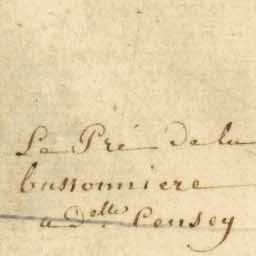 Le Pré de la
bussonniere
a d.elle Censey